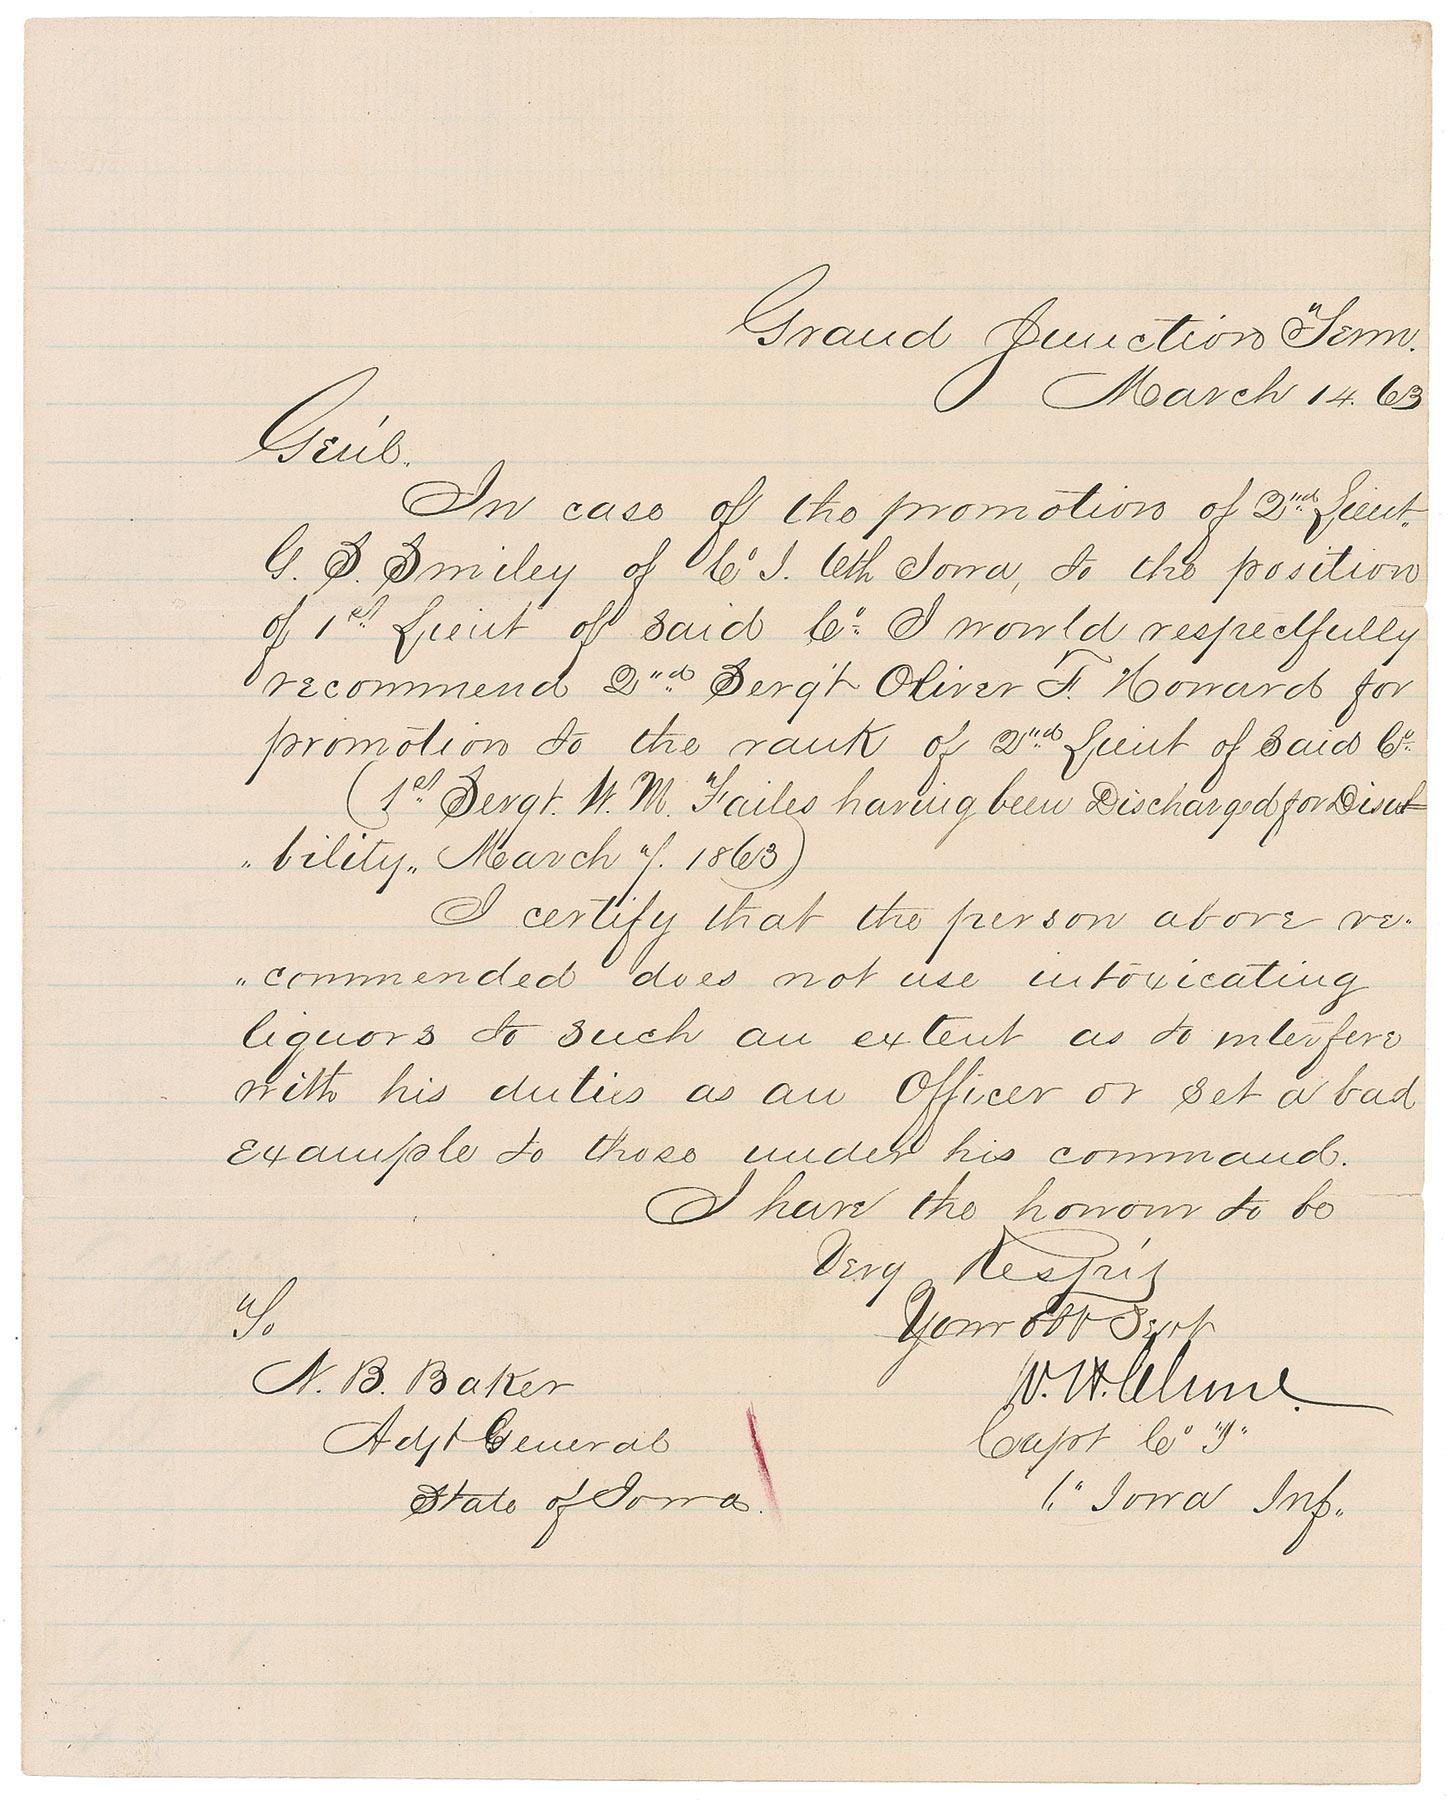 Grand Junction Tenn.
March 14. 63
Gen'l.
In case of the promotion of 2nd Lieut.
G. S. Smiley of Co I. 6th Iowa, to the position
of 1st Lieut of said Co. I would respectfully
recommend 2nd Sergt Oliver F. Howard for
promotion to the rank of 2nd Lieut of said Co.
(1st Sergt. W. M. Failes having been Discharged for Disa
"bility" March 7. 1863)
I certify that the person above re-
"commended does not use intoxicating
liquors to such an extent as to interfere
with his duties as an Officer or set a bad
example to those under his command.
I have the honour to be
Very Resp'ly
Your Obt Servt
To
N. B. Baker
Adjt General
State of Iowa.
W. H. Clune.
Capt Co "I"
6" Iowa Inf.